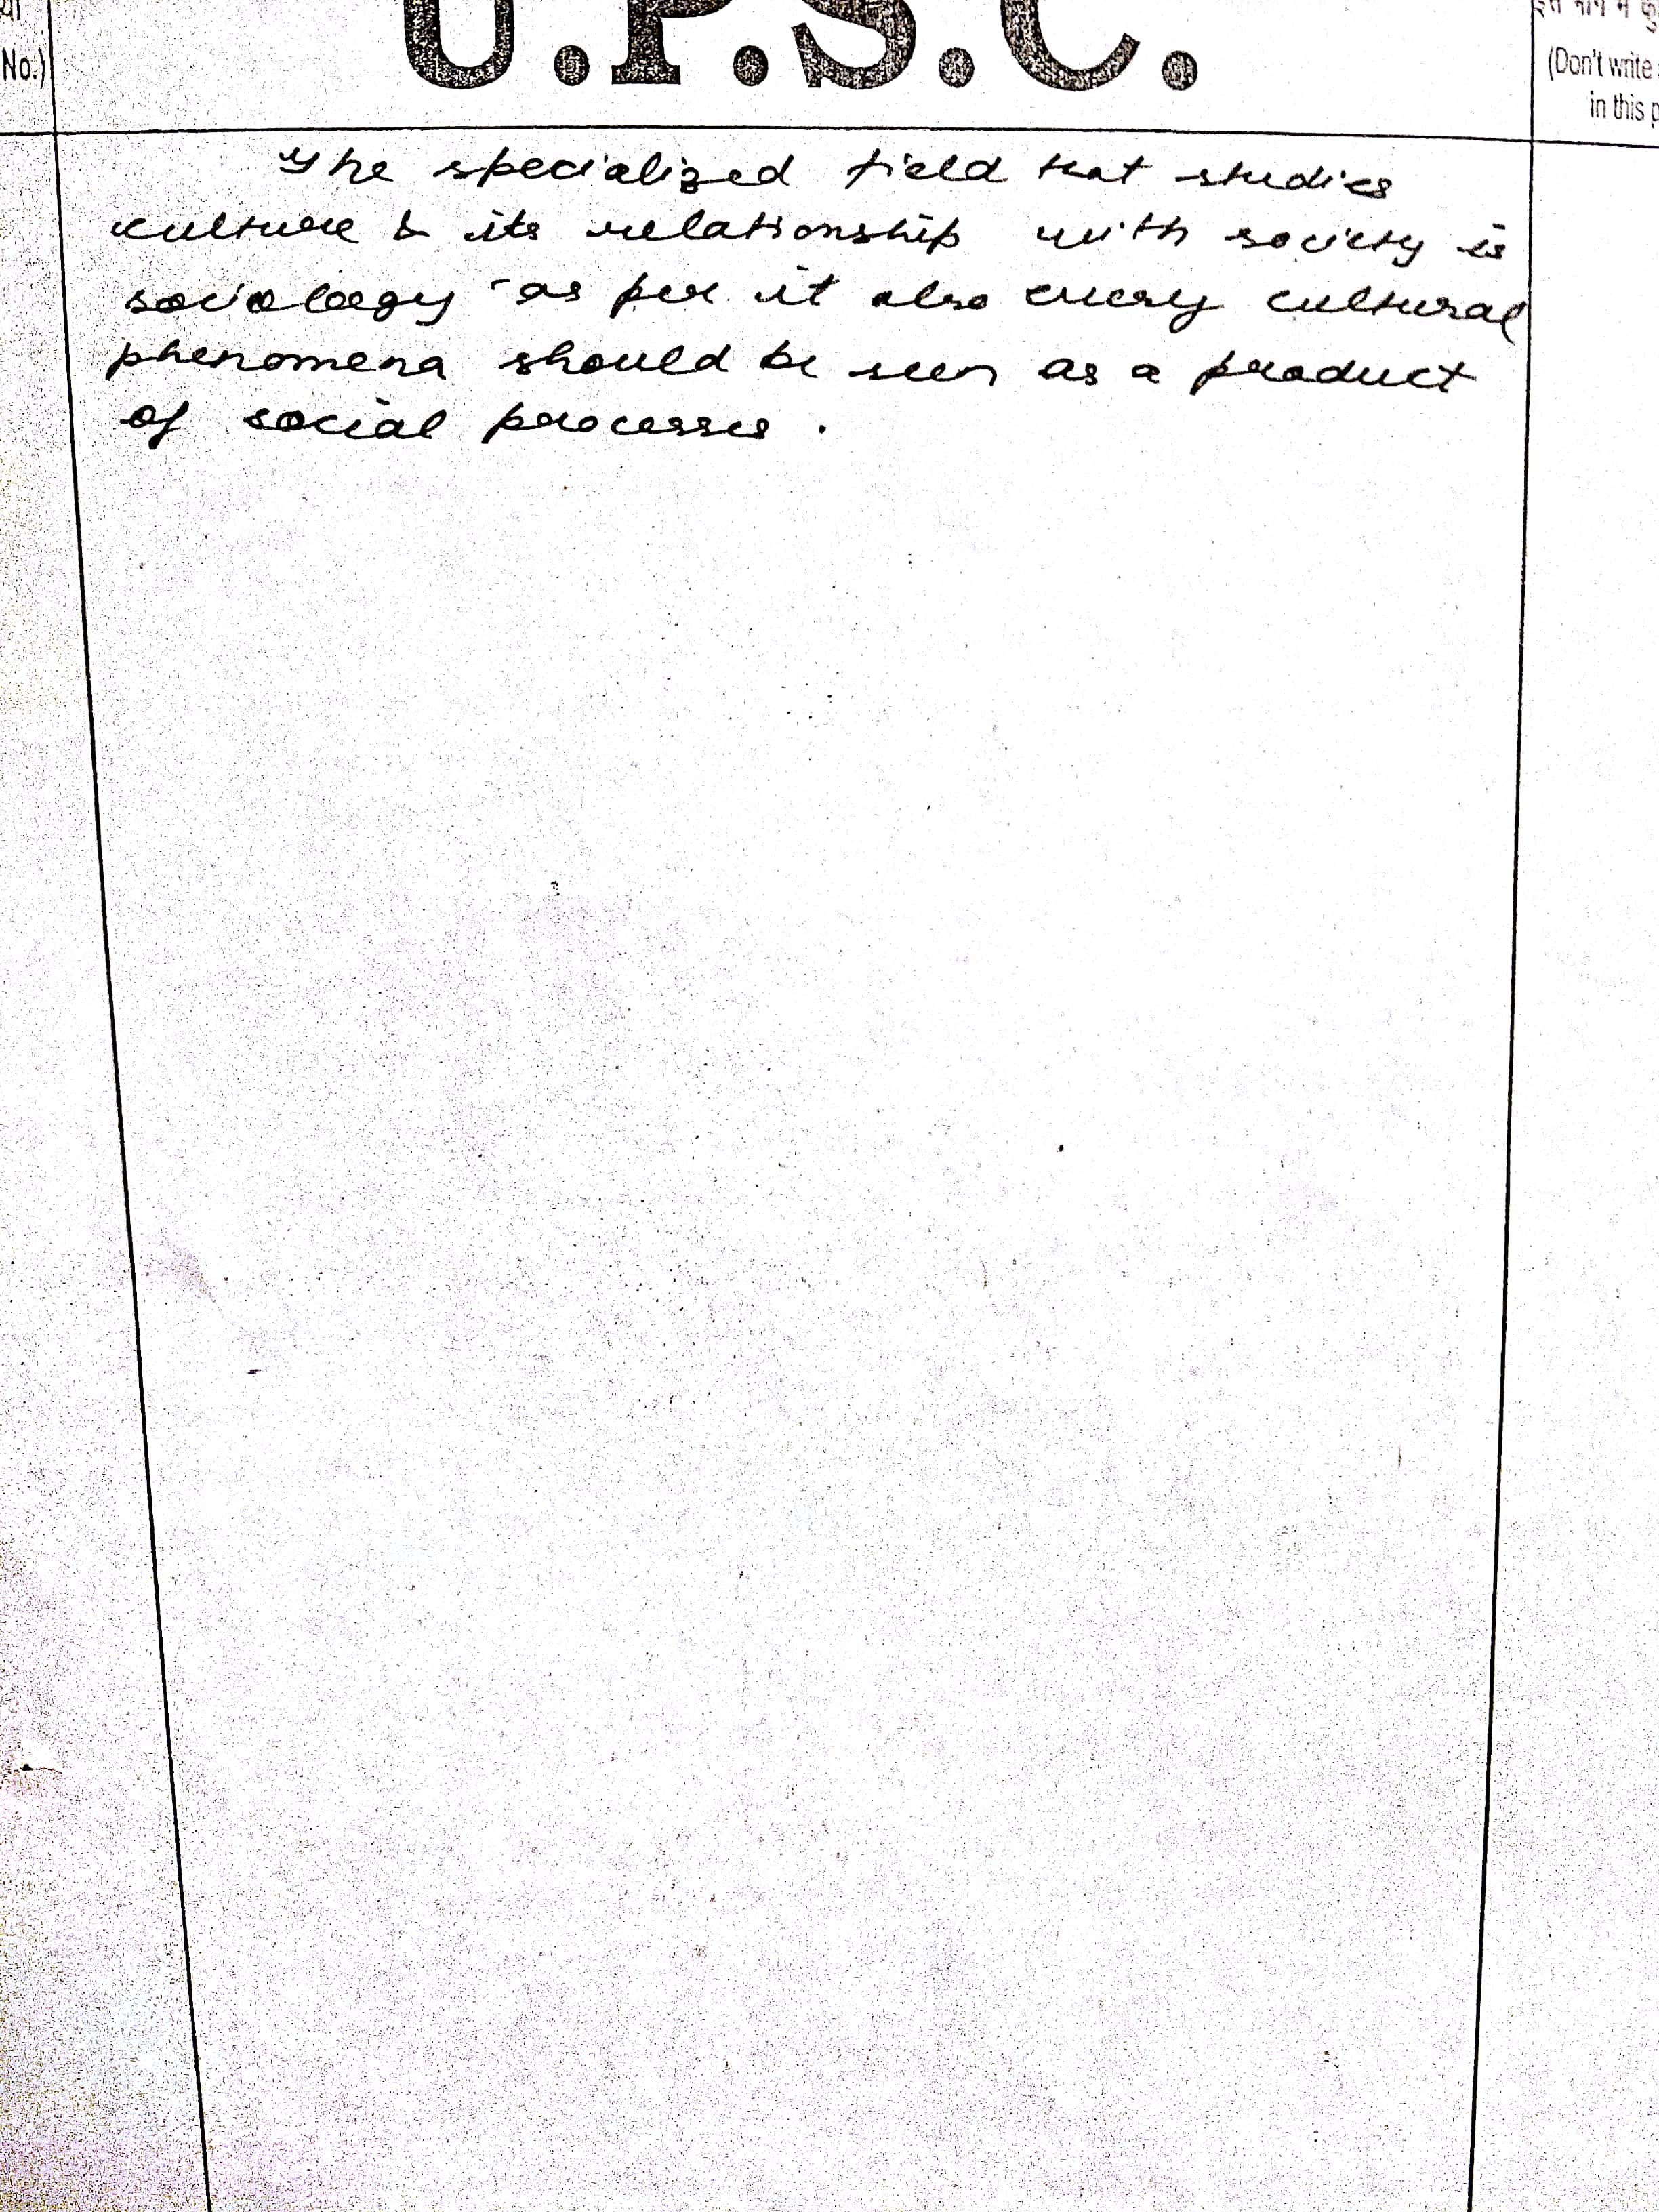 U.P.S.C.
No.)
(Don't write
in this p
The specialized field that studies
culture & its relationship with society is
sociology - as per it also every cultural
phenomena should be seen as a product
of social processes.